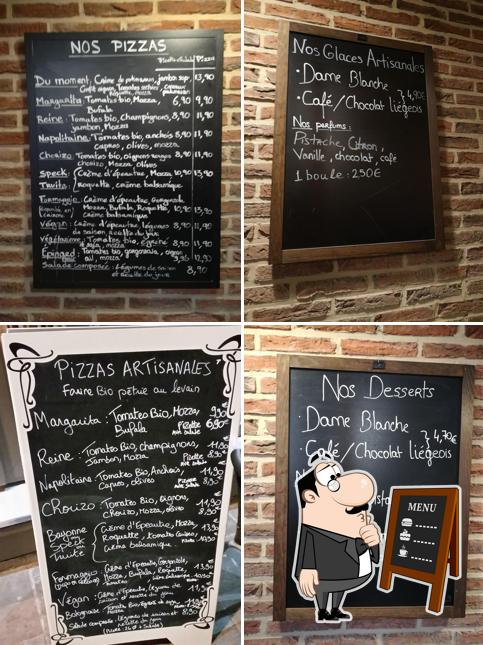 NOS PIZZAS
Pizza
Du moment: Crème de potimarron, jambon sup, 13,90
Margarita: Tomates bio, Mozza, 6,90 9,90
Bufala
Reine: Tomates bio, Champignons, 8,90 11,90
jambon, Mozza
Napolitaine: Tomates bio, anchois 8,90 11,90
Capres, olives, mozza
Chorizo: Tomates bio, oignons rouges 8,90 11,90
chorizo, Mozza, Olives
Speck: Crème d'épeautre, Mozza 10,90 13,90
Truite: Roquette, crème balsamique
Formaggio: Crème d'épeautre, Gorgonzola
Mozza, Bufala, Roquette, 10,90 13,90
Crème balsamique
Végan: Crème d'épeautre, légumes 8,90 11,90
de saison, récolte du jour
Végétarienne: Tomate bio, 8,90 11,90
Tomates bio, gorgonzola, oignon
ail, mozza 12,90
Salade composée: légumes de saison
et récolte du jour 8,90
Nos Glaces Artisanales
• Dame Blanche
• Café/Chocolat liégeois
} 4,90€
Nos parfums:
Pistache, Citron,
Vanille, chocolat, café
1 boule: 2,50€
PIZZAS ARTISANALES
Farine Bio pétrie au levain
Margarita: Tomates Bio, Mozza, 9,90
Bufala 6,90€
Reine: Tomates Bio, champignons, 11,90
Jambon, Mozza 8,90
Napolitaine: Tomates Bio, Anchois, 11,90
Capres, olives 8,90
CHorizo: Tomates Bio, Oignons, 11,90
CHorizo, Mozza, olives 8,90
Bayonne
Speck
Truite
Crème d'Epeautre, Mozza, 13,90
Roquette, tomates cerises,
Crème balsamique
Formaggio: Crème d'Epeautre, Gorgonzola,
Mozza, Bufala, Roquette, 13,90
Végan: Crème d'Epeautre, légumes de
saison et récolte du jour
Bolognaise
Salade composée: légumes de saison et 8,90
récolte du jour
Nos Desserts
• Dame Blanche
• Café/Chocolat liégeois
} 4,70€
MENU